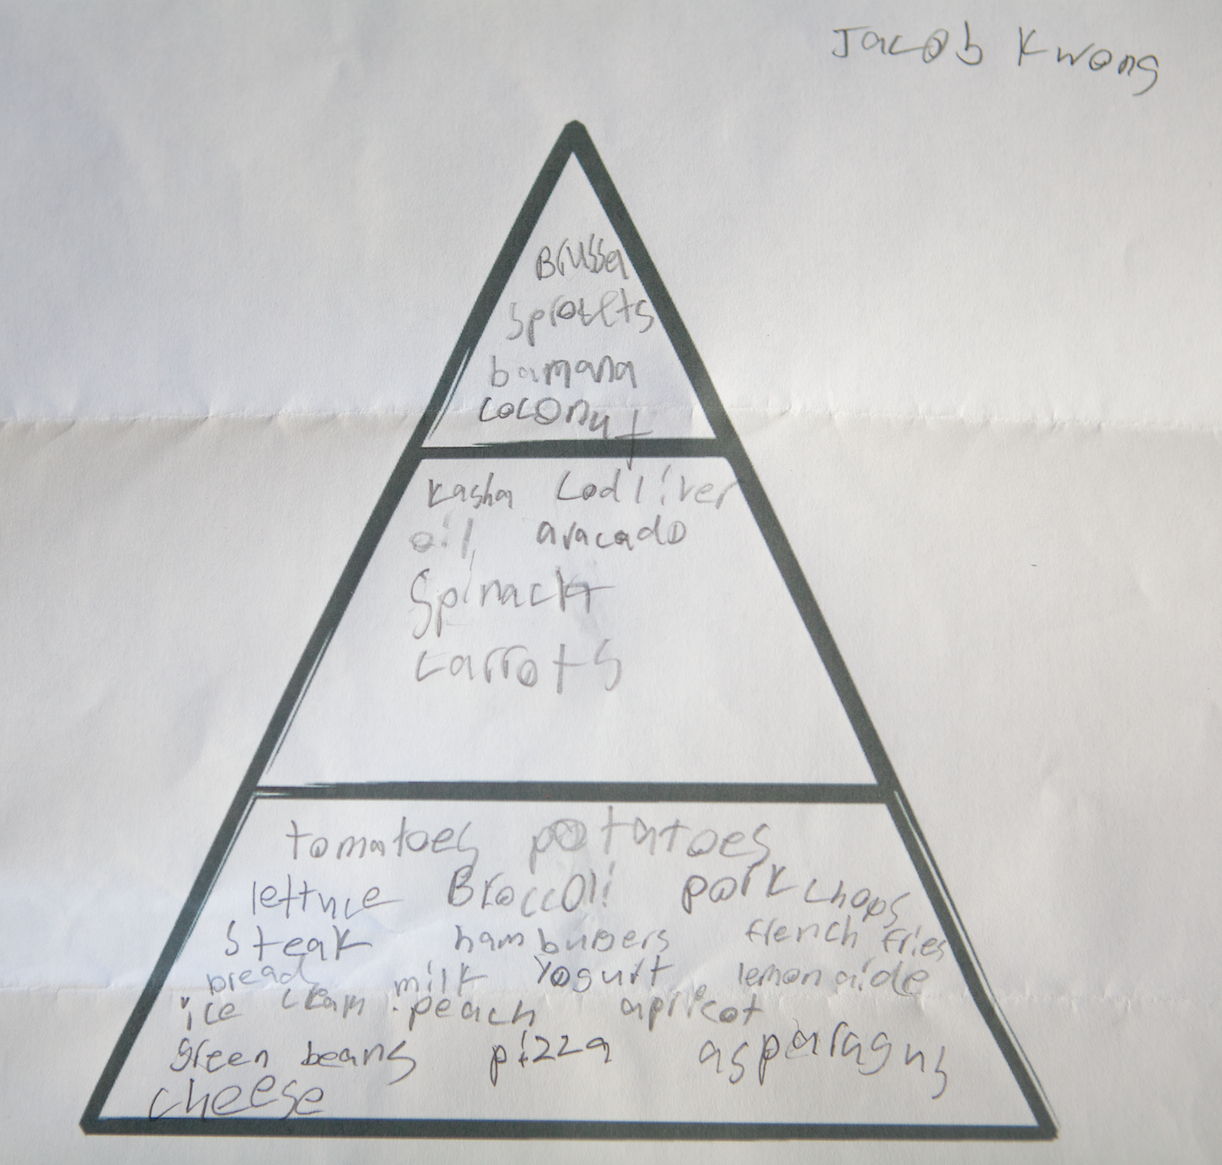 Jacob Kwong
Brussel
sproults
bamana
coconut
kasha cod liver
oil avacado
Spinach
carrots
tomatoes potatoes
lettuce Broccoli pork chops
steak hamburgers french fries
bread milk yogurt lemonaide
ice cream peach apricot
green beans pizza asparagus
cheese